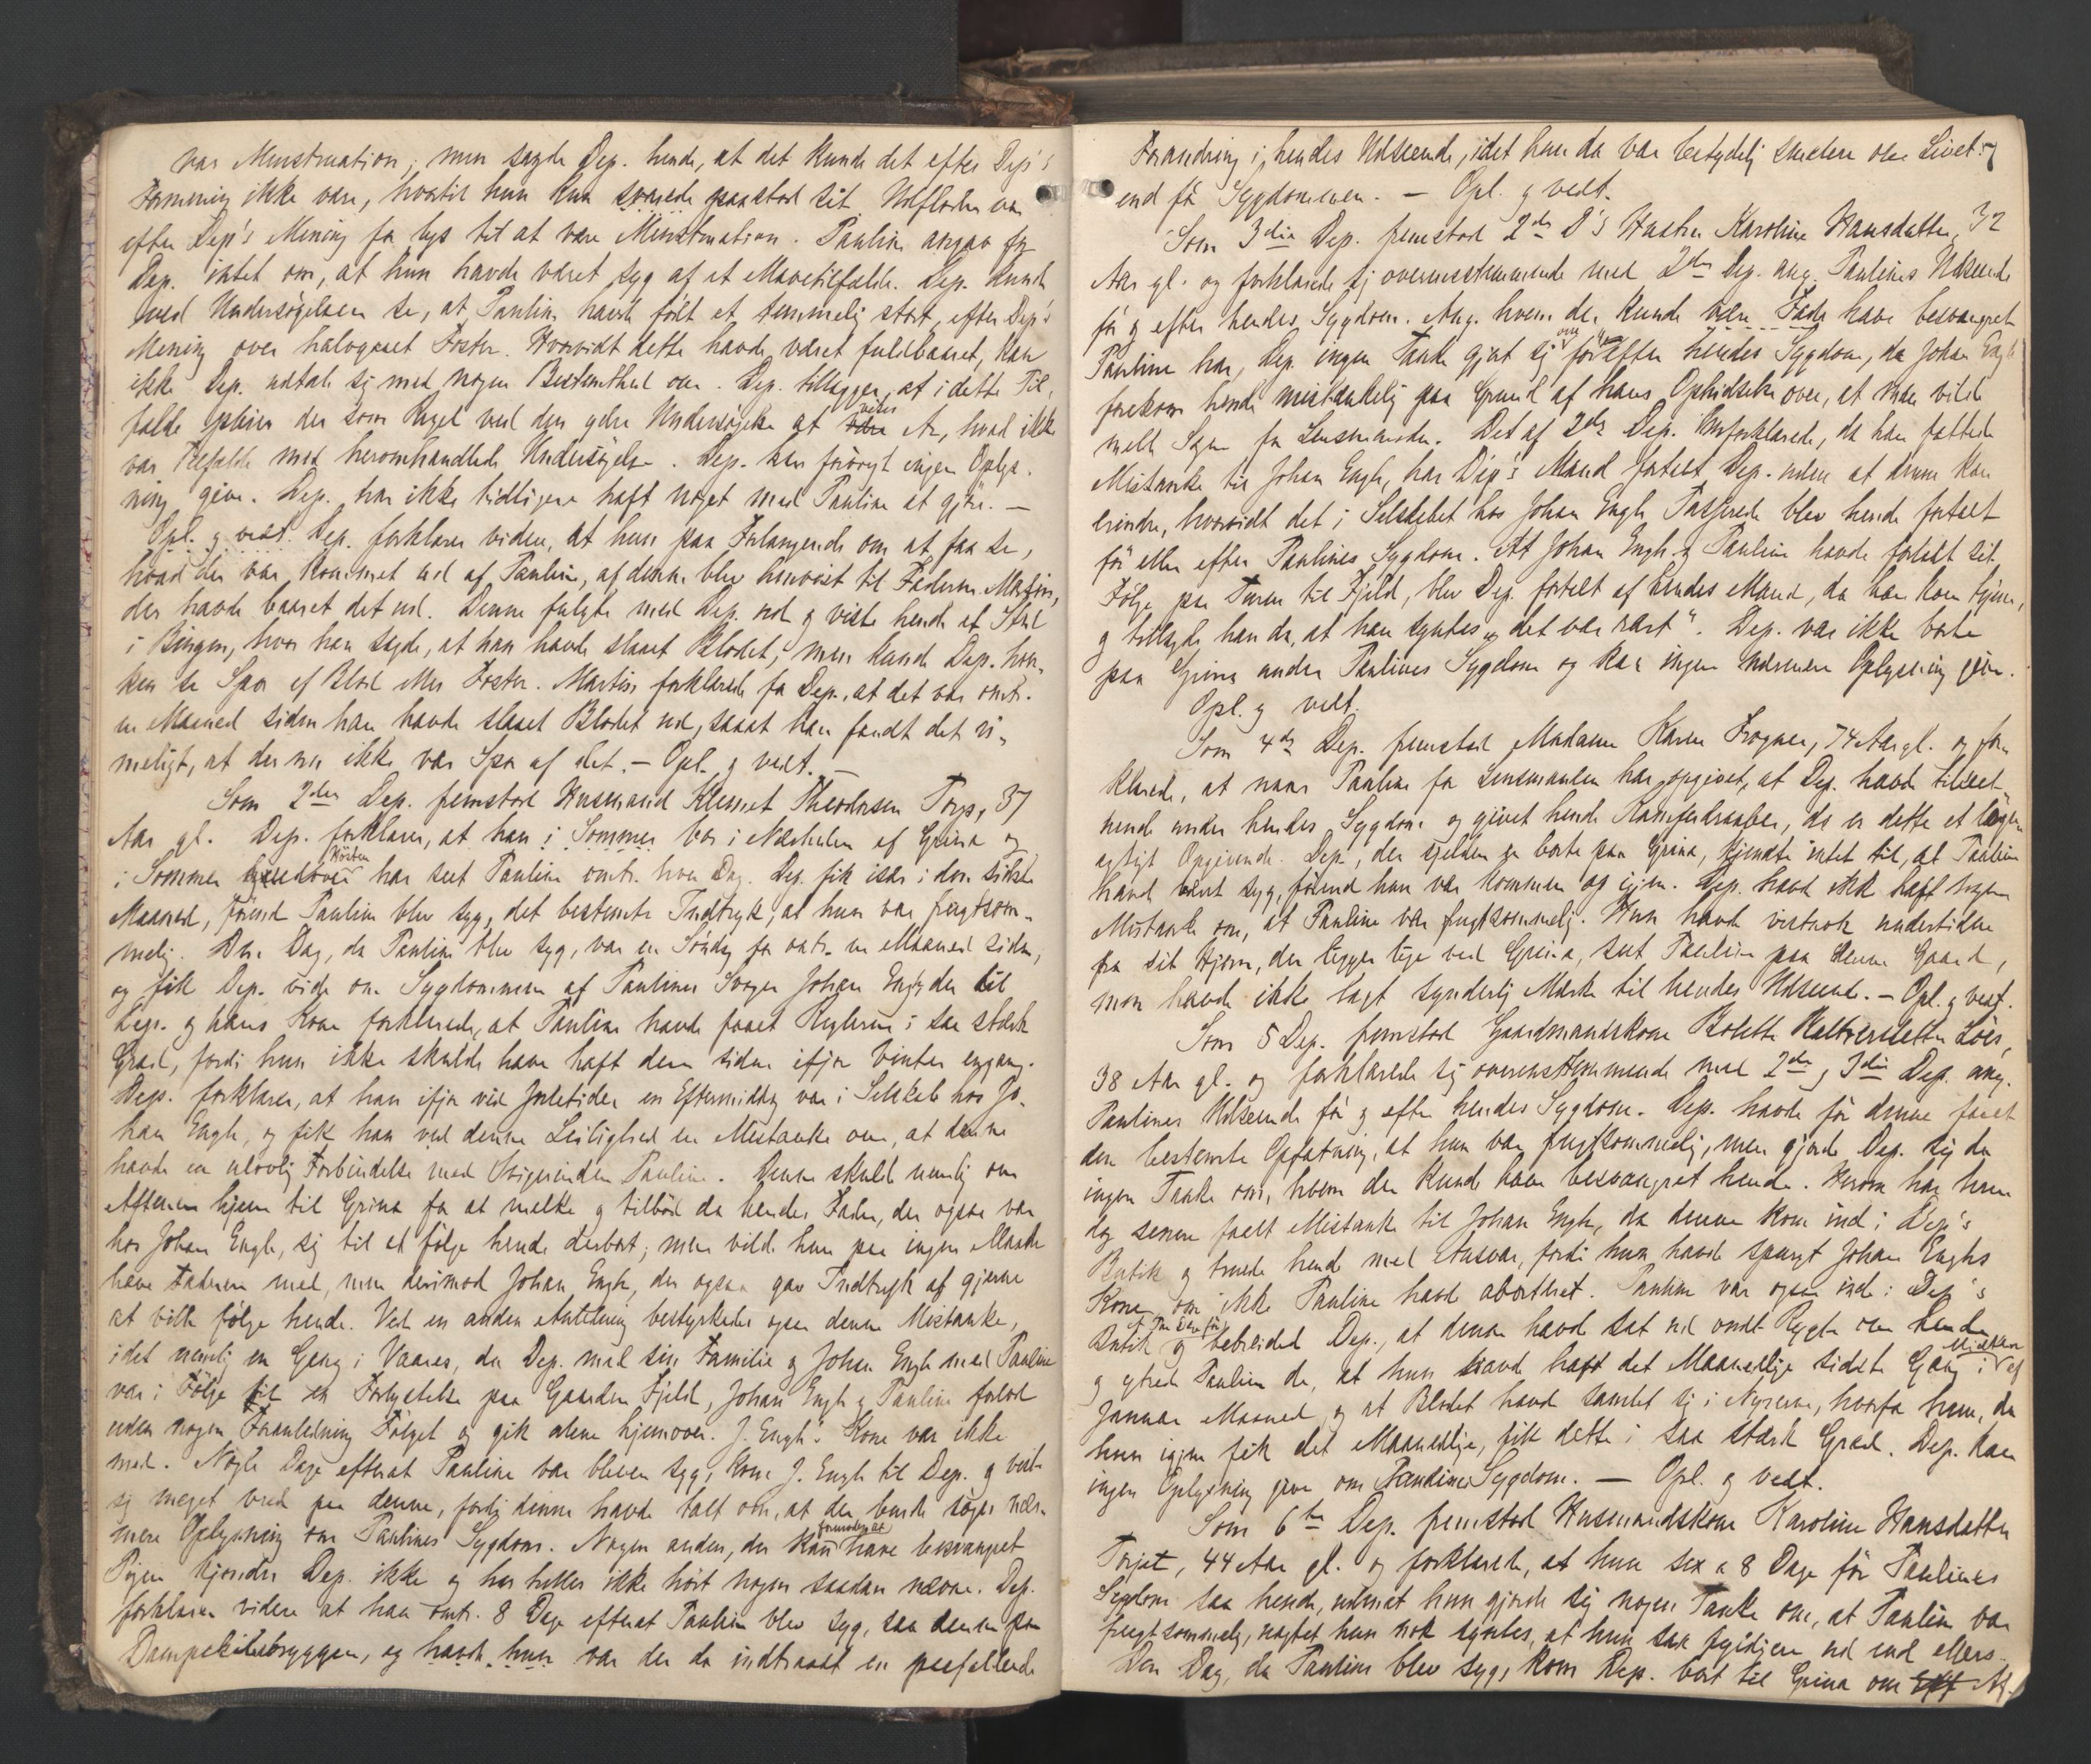 var Menstruation; men sagde Dep. hende, at det kunde det efter Dep's
Formening ikke være, hvortil hun kun svarede paastod sit. Udfloden var
efter Dep's Mening for lys til at være Menstruation. Pauline angav for
Dep. intet om, at hun havde været syg af et Mavetilfælde. Dep. kunde
ved Undersøgelsen se, at Pauline havde født et temmelig stort, efter Dep's
Mening over halvgaaet Foster. Hvorvidt dette havde været fuldbaaret, kan
ikke Dep. udtale sig med nogen Bestemthed om. Dep. tillægger, at i dette Til-
fælde opstaar der som Regel ved den ydre Undersøgelse at være etc, hvad ikke
var Tilfælde med heromhandlede Undersøgelse. Dep. kan forøvrigt ingen Oplys-
ning give. Dep. har ikke tidligere haft noget med Pauline at gjøre. —
Opl. og vedt. Dep. forklarer videre, at hun paa Forlangende om at faa se,
hvad der var kommet ud af Pauline, af denne blev henvist til Faderen Martin,
der havde baaret det ud. Denne fulgte med Dep. ud og viste hende et Sted
i Bingen, hvor han sagde, at han havde slaaet Blodet; men kunde Dep. hver-
ken se Spor af Blod eller Foster. Martin forklarede for Dep., at det var omtr.
en Maaned siden han havde slaaet Blodet ud, saaat han fandt det ri-
meligt, at der nu ikke var Spor af det. — Opl. og vedt. —
Som 2den Dep. fremstod Husmand Klemet Theodorsen Torp, 37
Aar gl. Dep. forklarer, at han i Sommer bor i Nærheden af Grina og
i Sommer Høsten har seet Pauline omtr. hver Dag. Dep. fik især i den sidste
Maaned, førend Pauline blev syg, det bestemte Indtryk, at hun var frugtsom-
melig. Den Dag, da Pauline blev syg, var en Søndag for omtr. en Maaned siden,
og fik Dep. vide om Sygdommen af Paulines Svoger Johan Engh, der til
Dep. og hans Kone forklarede, at Pauline havde faaet Reglerne i saa stærk
Grad, fordi hun ikke skulde have haft dem siden ifjor Vinter engang.
Dep. forklarer, at han ifjor ved Juletider en Eftermiddag var i Selskab hos Jo-
han Engh, og fik han ved denne Leilighed en Mistanke om, at denne
havde en ulovlig Forbindelse med Svigerinden Pauline. Denne skulde nemlig om
Aftenen hjem til Grina for at melke og tilbød da hendes Fader, der ogsaa var
hos Johan Engh, sig til at følge hende derbort; men vilde hun paa ingen Maade
have Faderen med, men derimod Johan Engh, der ogsaa gav Indtryk af gjerne
at ville følge hende. Ved en anden Anledning bestyrkedes ogsaa denne Mistanke,
idet nemlig en Gang i Vaares, da Dep. med sin Familie og Johan Engh med Pauline
var i Følge til en Forlystelse paa Gaarden Fjeld, Johan Engh og Pauline forlod
uden nogen Foranledning Følget og gik alene hjemover. J. Engh's Kone var ikke
med. Nogle Dage efterat Pauline var bleven syg, kom J. Engh til Dep. og viste
sig meget vred paa denne, fordi denne havde talt om, at der burde søges nær-
mere Oplysning om Paulines Sygdom. Nogen anden, der kan formodes at have besvangret
Pigen kjender Dep. ikke og har heller ikke hørt nogen saadan nævne. Dep.
forklarer videre at han omtr. 8 Dage efterat Pauline blev syg, saa denne paa
Dampskibsbryggen, og havde hun var der da indtraadt en paafaldende
Forandring i hendes Udseende, idet hun da var betydelig smækrere om Livet
end før Sygdommen. — Opl. og vedt.
Som 3die Dep. fremstod 2den D's Hustru Karoline Hansdatter, 32
Aar gl. og forklarede sig overensstemmende med 2den Dep. ang. Paulines Udseende
før og efter hendes Sygdom. Ang. hvem der kunde være Fader have besvangret
Pauline har Dep. ingen Tanke gjort sig før efter hendes Sygdom, da Johan Engh
forekom hende mistænkelig paa Grund af hans Ophidselse over, at man vilde
melde Sagen for Lensmanden. Det af 2den Dep. forklarede, da han fattede
Mistanke til Johan Engh, har Dep's Mand fortalt Dep. uden at denne kan
erindre, hvorvidt det i Selskabet hos Johan Engh Passerede blev hende fortalt
før eller efter Paulines Sygdom. At Johan Engh og Pauline havde forladt sit
Følge paa Turen til Fjeld, blev Dep. fortalt af hendes Mand, da han kom hjem,
og tilføiede han da, at han syntes „det var rart“. Dep. var ikke borte
paa Grina under Paulines Sygdom og kan ingen nærmere Oplysning give.
Opl. og vedt.
Som 4de Dep. fremstod Madame Karen Frogner, 74 Aar gl. og for-
klarede, at naar Pauline for Lensmanden har opgivet, at Dep. havde tilseet
hende under hendes Sygdom og givet hende Kamferdraaber, da er dette et løgn-
agtigt Opgivende. Dep., der sjelden er borte paa Grina, kjendte intet til, at Pauline
havde været syg, førend hun var kommen op igjen. Dep. havde ikke haft nogen
Mistanke om, at Pauline var frugtsommelig. Hun havde vistnok undertiden
fra sit Hjem, der ligger lige ved Grina, seet Pauline paa denne Gaard,
men havde ikke lagt synderlig Mærke til hendes Udseende. — Opl. og vedt.
Som 5 Dep. fremstod Gaardmandskone Bolette Halvorsdatter Löes,
38 Aar gl. og forklarede sig overensstemmende med 2den og 3die Dep. ang.
Paulines Udseende før og efter hendes Sygdom. Dep. havde før denne faaet
den bestemte Opfatning, at hun var frugtsommelig, men gjorde Dep. sig da
ingen Tanke om, hvem der kunde have besvangret hende. Herom har hun
dog senere faaet Mistanke til Johan Engh, da denne kom ind i Dep's
Butik og truede hende med Ansvar, fordi hun havde spurgt Johan Enghs
Kone, om ikke Pauline havde aborteret. Pauline var ogsaa inde i Dep's
Butik og bebreidet Dep., at denne havde sat ud ondt Rygte om hende
og ytrede Pauline da, at hun havde haft det Maanedlige sidste Gang i Midten af
Januar Maaned, og at Blodet havde samlet sig i Nyrerne, hvorfor hun, da
hun igjen fik det Maanedlige, fik dette i saa stærk Grad. Dep. kan
ingen Oplysning give om Paulines Sygdom. — Opl. og vedt.
Som 6te Dep. fremstod Husmandskone Karoline Hansdatter
Torjet, 44 Aar gl. og forklarede, at hun sex a 8 Dage før Paulines
Sygdom saa hende, uden at hun gjorde sig nogen Tanke om, at Pauline var
frugtsommelig, uagtet hun nok syntes, at hun saa fyldigere ud end ellers.
Den Dag, da Pauline blev syg, kom Dep. bort til Grina om